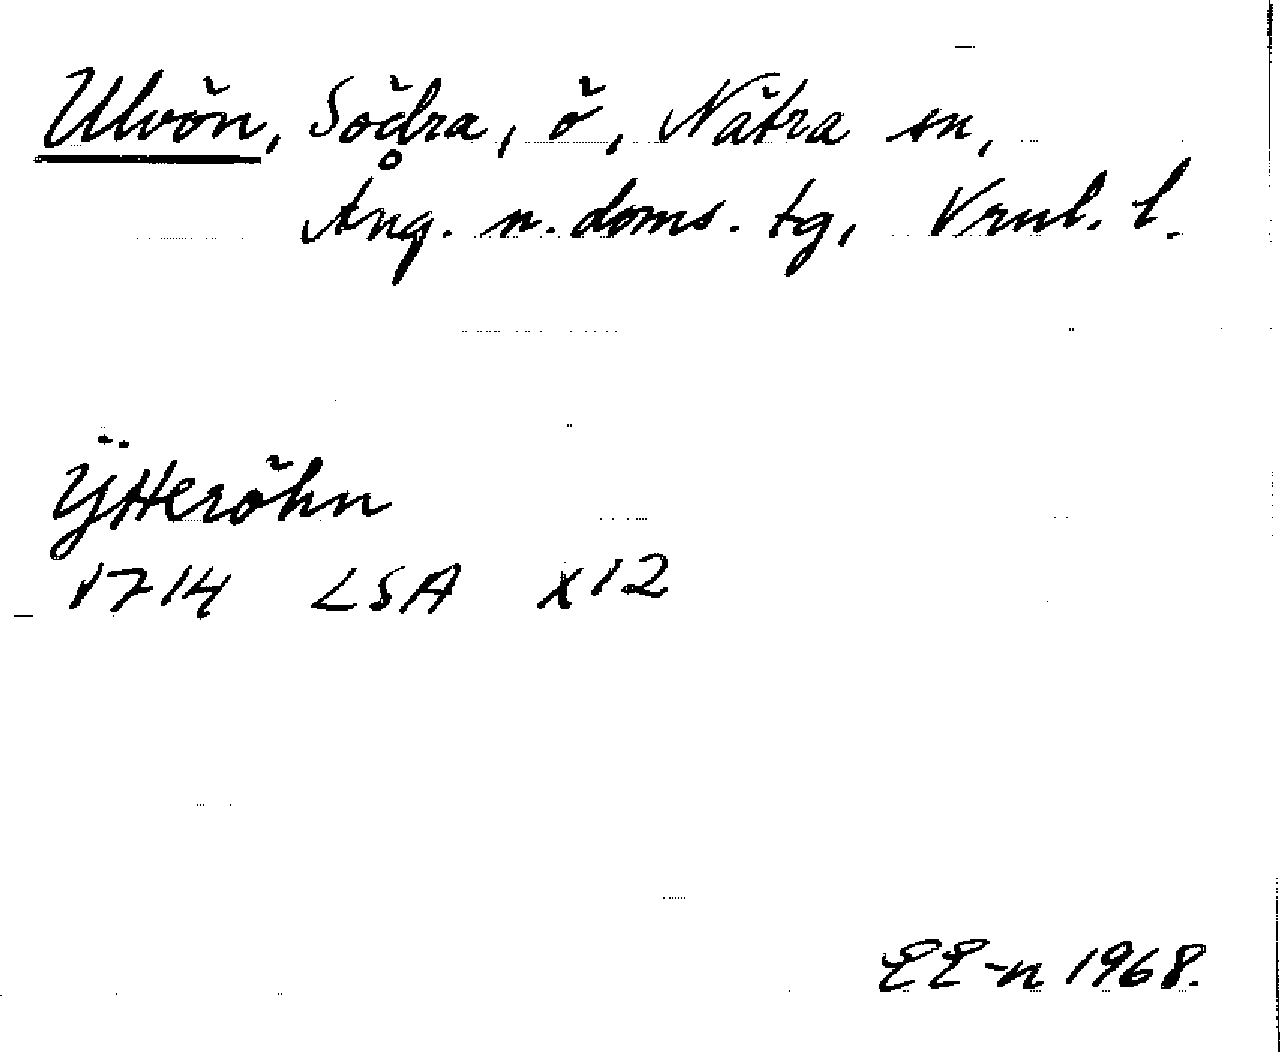 Ulvön, Södra, ö, Nätra sn,
Ång. n. doms. tg, Vrnl. l.
Ÿtteröhn
1714 LSA X12
EE-n 1968.